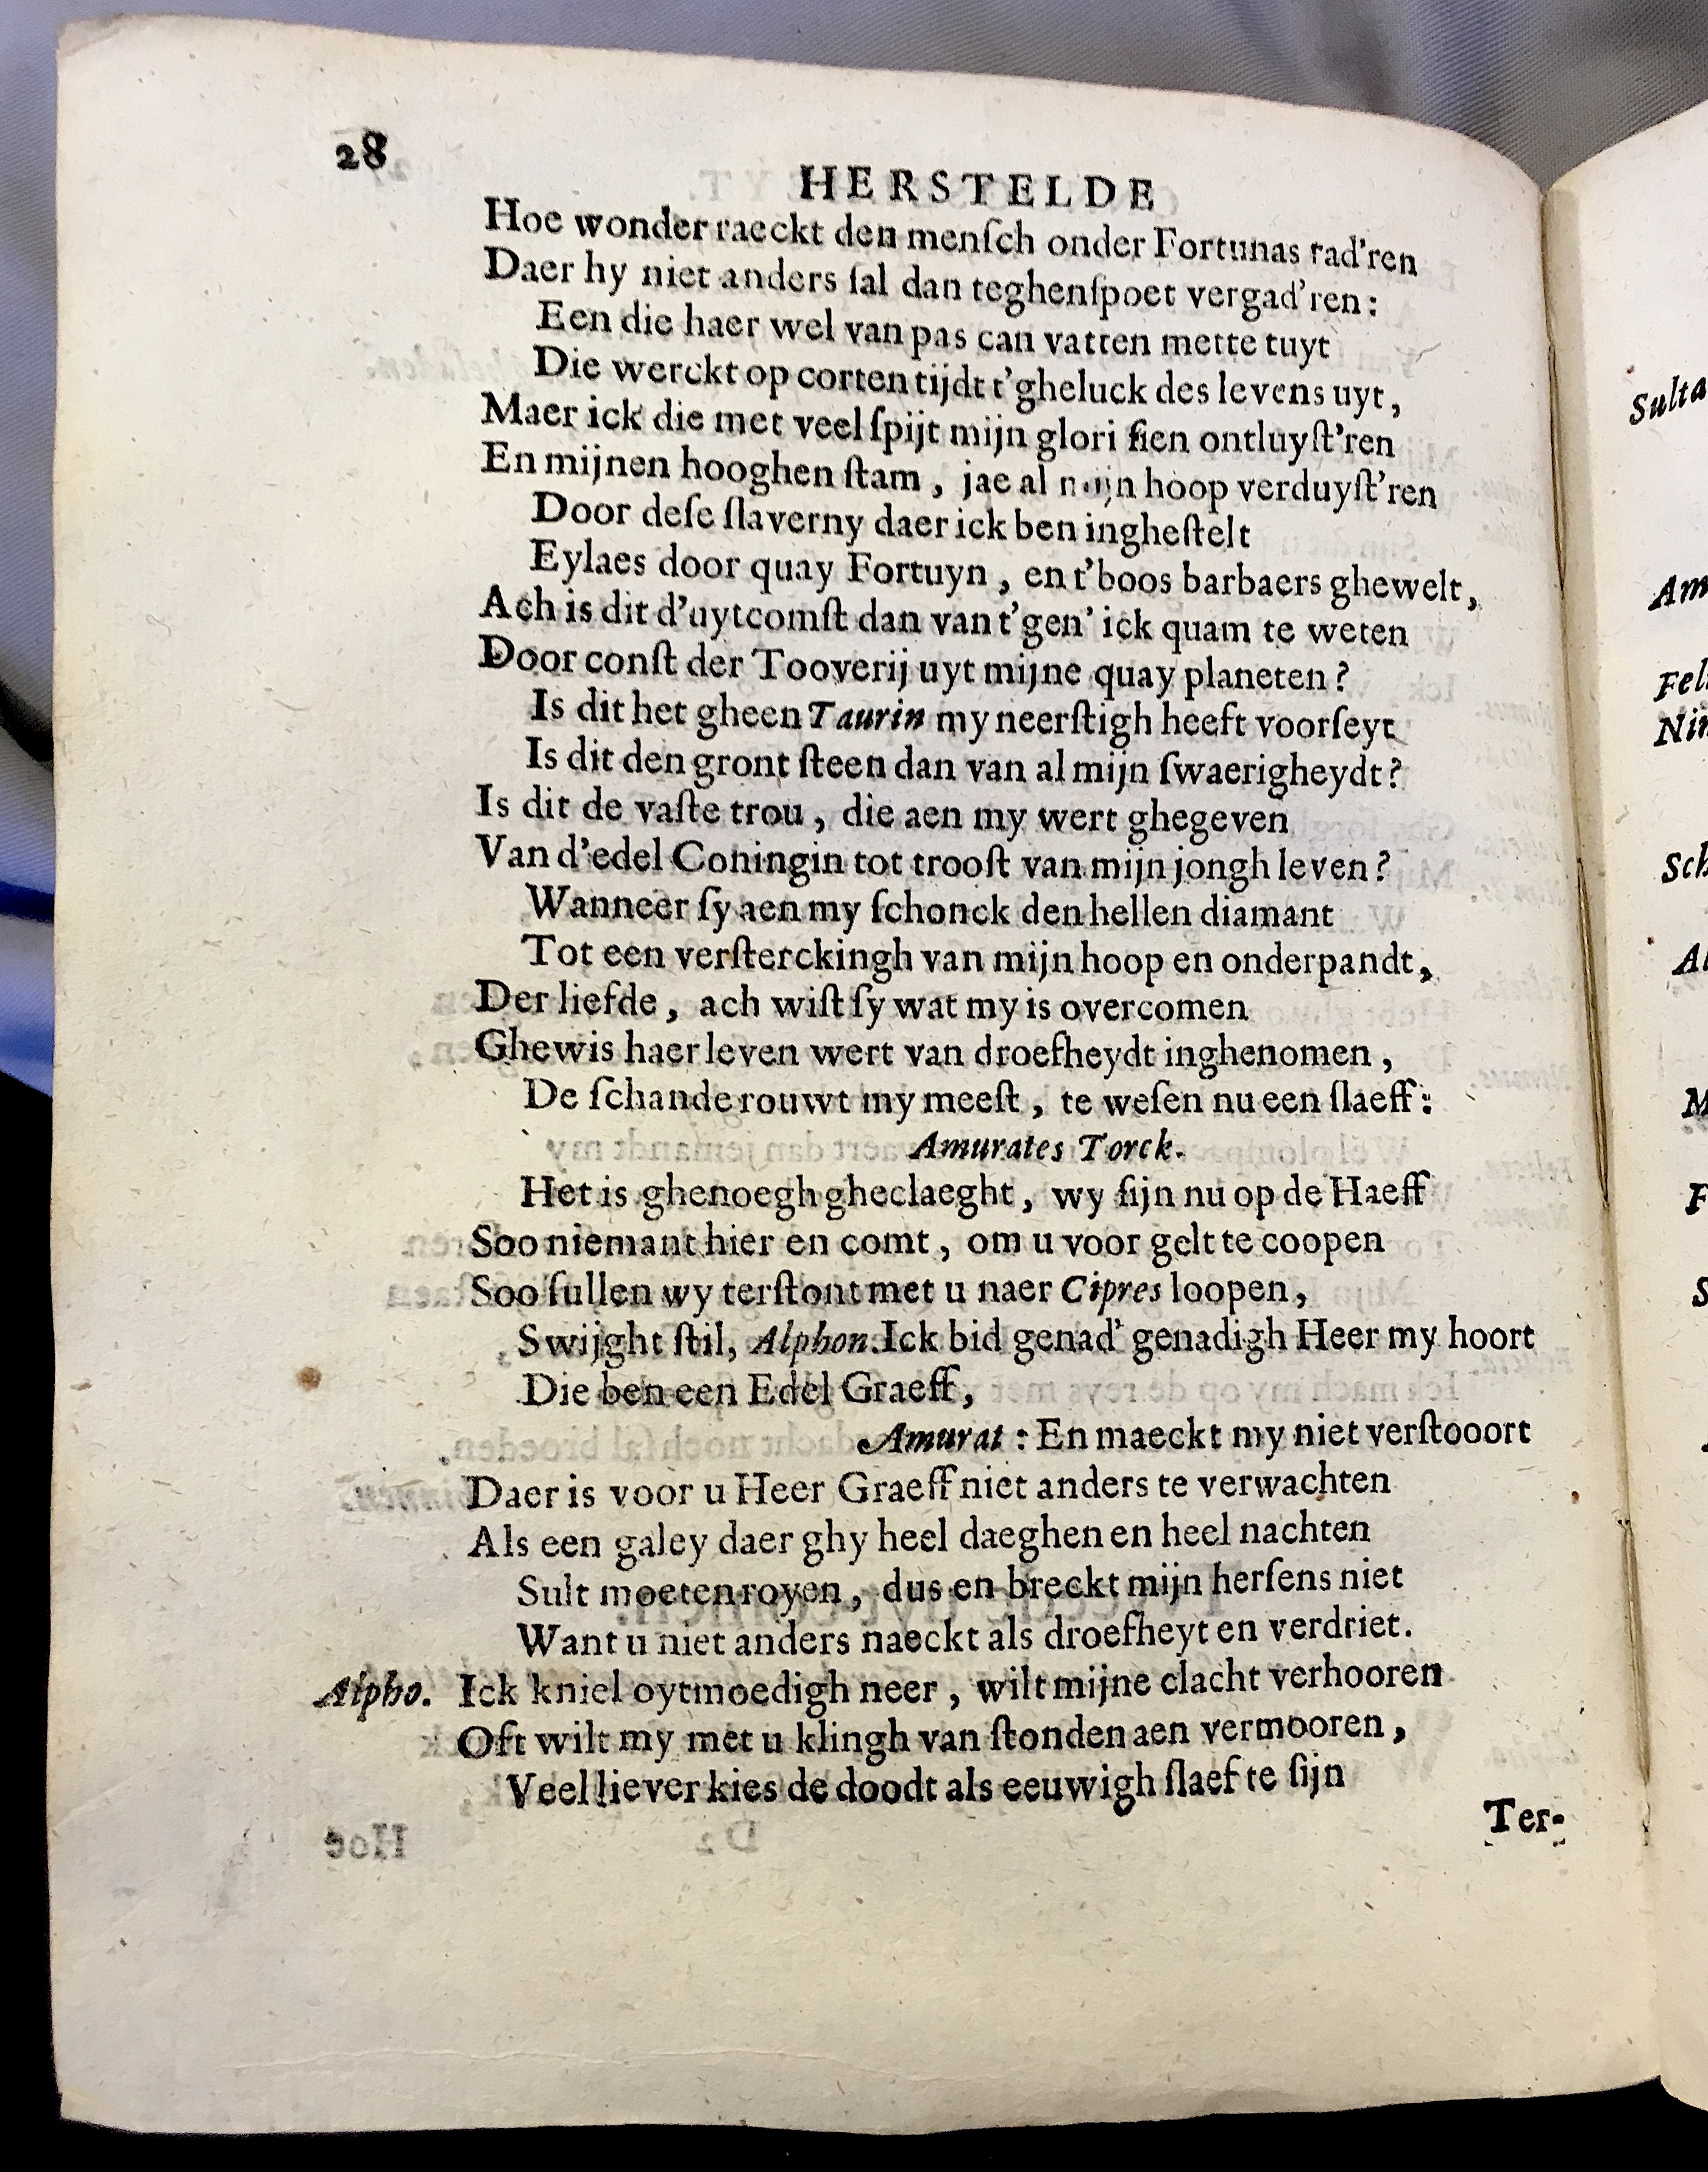 28
HERSTELDE
Hoe wonder raeckt den menſch onder Fortunas rad'ren
Daer hy niet anders ſal dan teghenſpoet vergad'ren:
Een die haer wel van pas can vatten mette tuyt
Die werckt op corten tijdt t'gheluck des levens uyt,
Maer ick die met veel ſpijt mijn glori ſien ontluyſt'ren
En mijnen hooghen ſtam, jae al mijn hoop verduyſt'ren
Door deſe ſlaverny daer ick ben ingheſtelt
Eylaes door quay Fortuyn, en t'boos barbaers ghewelt,
Ach is dit d'uytcomſt dan van t'gen' ick quam te weten
Door conſt der Tooverij uyt mijne quay planeten?
Is dit het gheen Taurin my neerſtigh heeft voorſeyt
Is dit den gront ſteen dan van al mijn ſwaerigheydt?
Is dit de vaſte trou, die aen my wert ghegeven
Van d'edel Coningin tot trooſt van mijn jongh leven?
Wanneer ſy aen my ſchonck den hellen diamant
Tot een verſterckingh van mijn hoop en onderpandt,
Der liefde, ach wiſt ſy wat my is overcomen
Ghewis haer leven wert van droefheydt inghenomen,
De ſchande rouwt my meeſt, te weſen nu een ſlaeff:
Amurates Torck.
Het is ghenoegh gheclaeght, wy ſijn nu op de Haeff
Soo niemant hier en comt, om u voor gelt te coopen
Soo ſullen wy terſtont met u naer Cipres loopen,
Swijght ſtil, Alphon. Ick bid genad' genadigh Heer my hoort
Die ben een Edel Graeff,
Amurat: En maeckt my niet verſtooort
Daer is voor u Heer Graeff niet anders te verwachten
Als een galey daer ghy heel daeghen en heel nachten
Sult moeten royen, dus en breckt mijn herſens niet
Want u niet anders naeckt als droefheyt en verdriet.
Alpho. Ick kniel oytmoedigh neer, wilt mijne clacht verhooren
Oft wilt my met u klingh van ſtonden aen vermooren,
Veel liever kies de doodt als eeuwigh ſlaef te ſijn
Ter-
Sulta
Am
Fel
Nin
Sch
Al
M
F
S